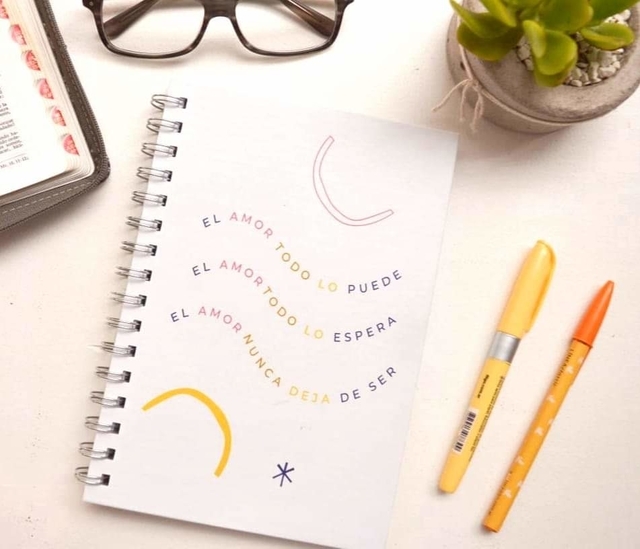 EL AMOR TODO LO PUEDE
EL AMOR TODO LO ESPERA
EL AMOR NUNCA DEJA DE SER